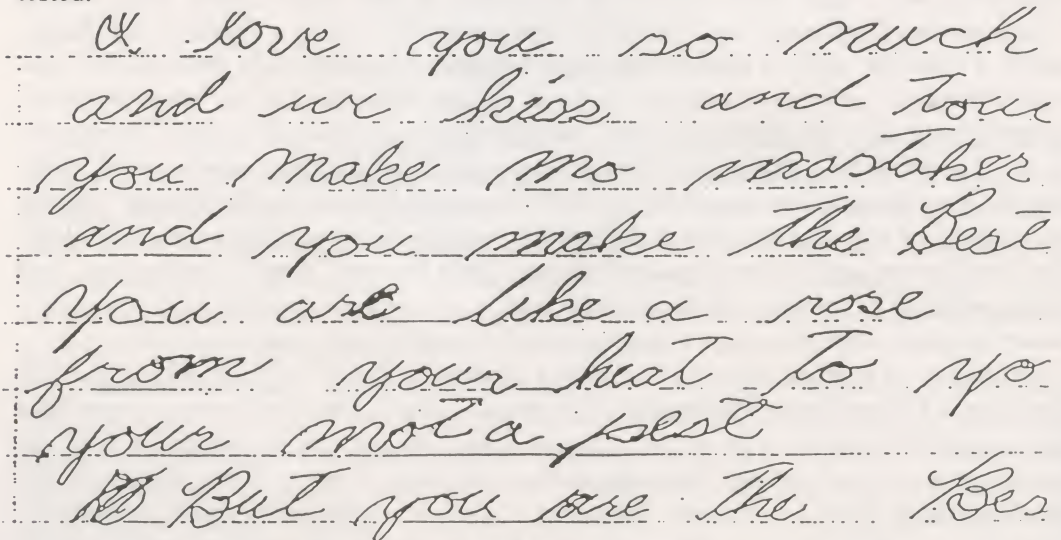 I love you so much
and we kiss and tou
you make no mastakes
and you make the Best
you are like a rose
from your heat to yo
your not a pest
But you are the Bes